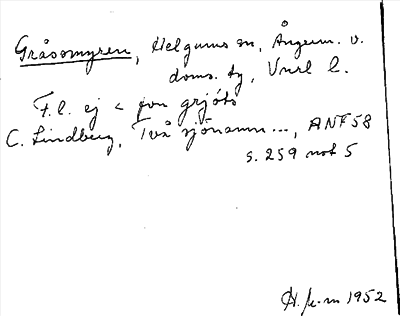 Gråssmyren, Helgums sn, Ångerm. v.
doms. tg, Vnrl l.
F.l. ej < fvn grjóts
C. Lindberg, Två sjönamn..., ANF 58
s. 259 not 5
1952